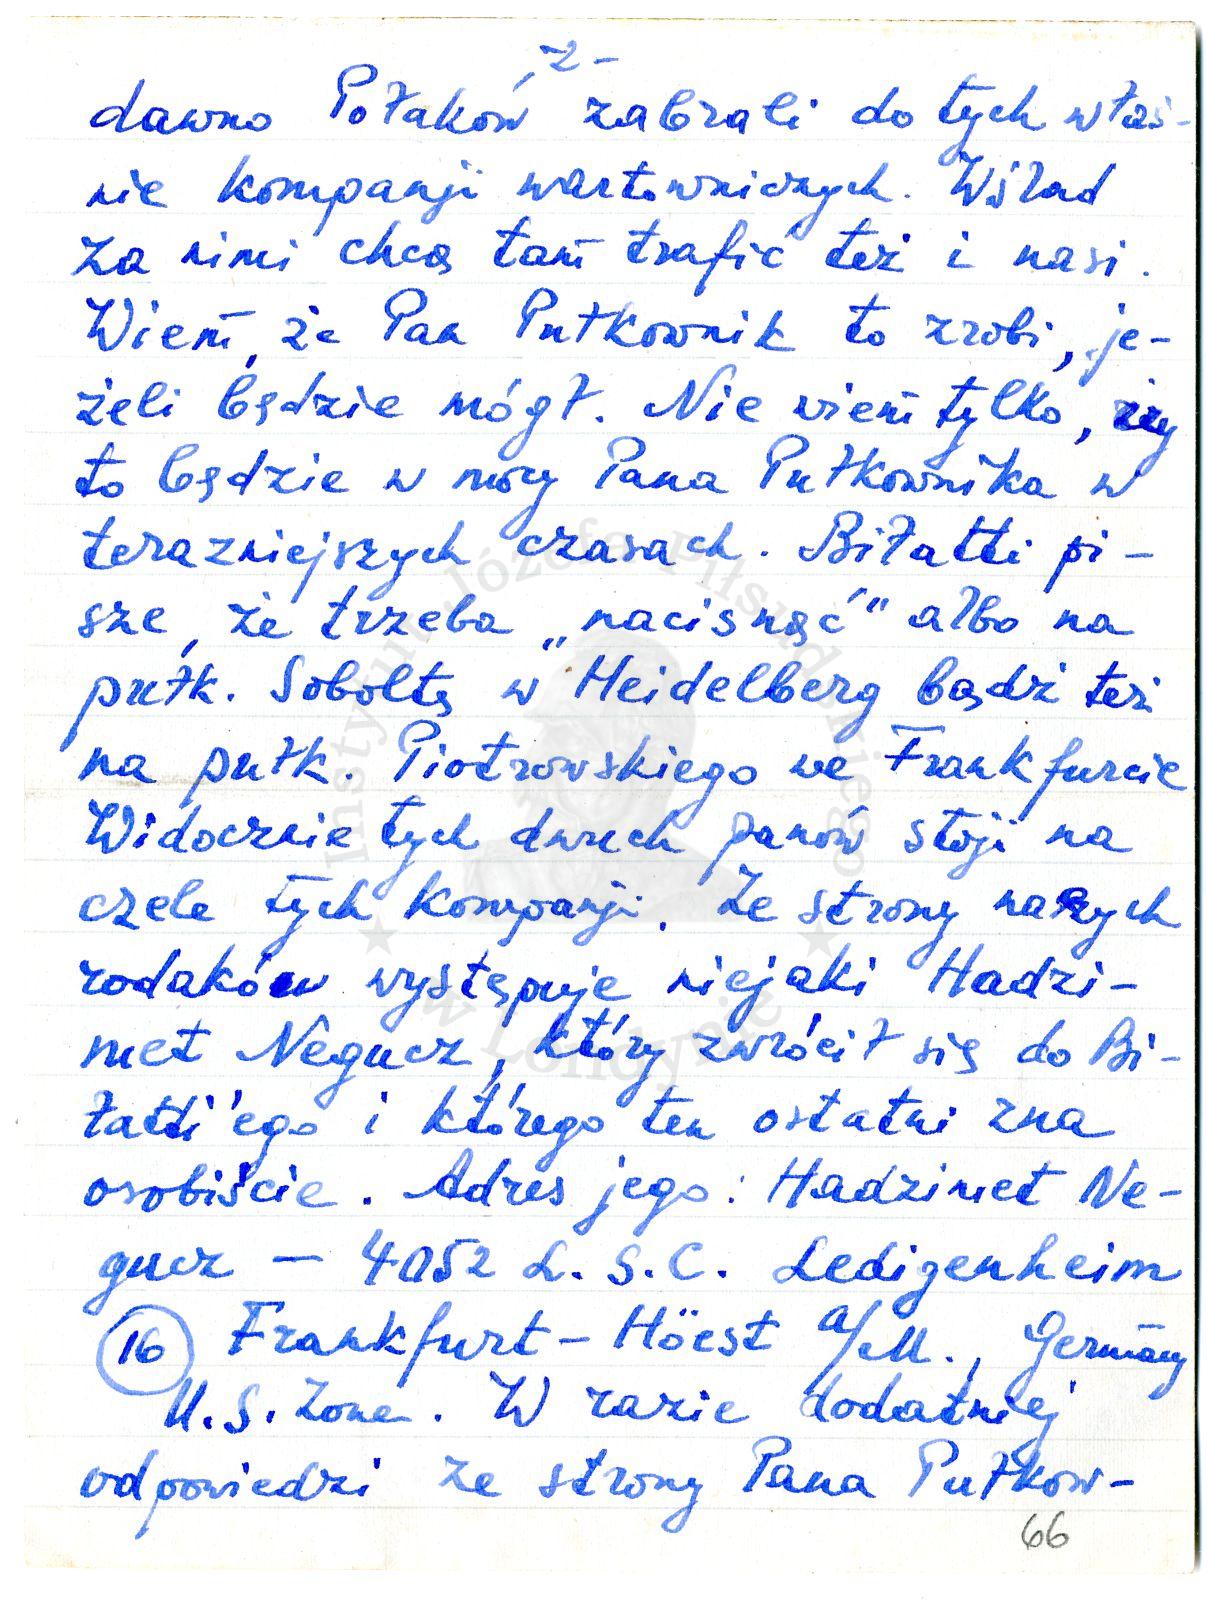 - 2 -
dawno Połaków zabrali do tych właś-
nie kompanji wartowniczych. Wślad
za nimi chcą tam trafić też i nasi.
Wiem, że Pan Pułkownik to zrobi, je-
żeli będzie mógł. Nie wiem tylko, czy
to będzie w mocy Pana Pułkownika w
terazniejszych czasach. Biłatti pi-
sze, że trzeba „nacisnąć" albo na
pułk. Soboltę w Heidelberg bądź też
na pułk. Piotrowskiego we Frankfurcie
Widocznie tych dwuch panów stoji na
czele tych kompanji. Ze strony naszych
rodaków występuje niejaki Hadzi-
met Negucz, który zwrócił się do Bi-
łatti'ego i którego ten ostatni zna
osobiście. Adres jego: Hadzimet Ne-
gucz — 4052 L.S.C. Ledigenheim
16 Frankfurt - Höest a/M., Germany
U.S. Zone. W razie dodatniej
odpowiedzi ze strony Pana Pułkow-
66
Instytut Józefa Piłsudskiego
w Londynie